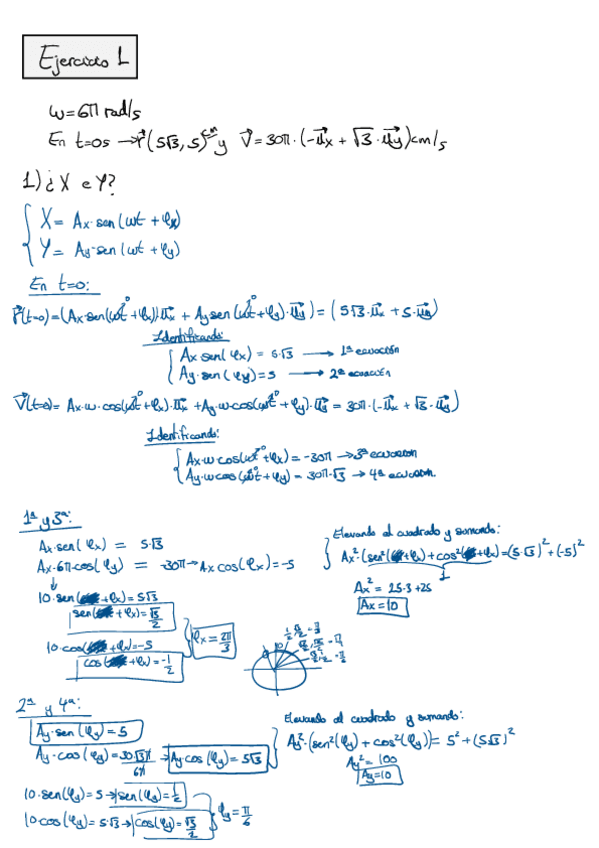 Ejercicio 1
ω=6π rad/s
En t=0s → r⃗(5√3, 5)cm y V⃗=30π·(-u⃗x + √3·u⃗y)cm/s
1) ¿X e Y?
X= Ax·sen(ωt + φx)
Y= Ay·sen(ωt + φy)
En t=0:
r⃗(t=0)=(Ax·sen(ωt⁰+φx)u⃗x + Ay·sen(ωt⁰+φy)·u⃗y)=(5√3·u⃗x + 5·u⃗y)
Identificando:
Ax·sen(φx) = 5√3 → 1ª ecuación
Ay·sen(φy)=5 → 2ª ecuación
V⃗(t=0)= Ax·ω·cos(ωt⁰+φx)·u⃗x +Ay·ω·cos(ωt⁰+φy)·u⃗y = 30π·(-u⃗x + √3·u⃗y)
Identificando:
Ax·ω·cos(ωt⁰+φx)=-30π → 3ª ecuación
Ay·ω·cos(ωt⁰+φy) = 30π·√3 → 4ª ecuación.
1ª y 3ª:
Ax·sen(φx) = 5√3
Ax·6π·cos(φy) = -30π → Ax cos(φx)=-5
Elevando al cuadrado y sumando:
Ax²·(sen²(+φx)+cos²(+φx)=(5√3)²+(-5)²
1
Ax² = 25·3+25
Ax=10
10·sen(+φx)=5√3
sen(+φx)=√3/2
10·cos(+φx)=-5
cos(+φx)=-1/2
φx=2π/3
2ª y 4ª:
Ay·sen(φy)=5
Ay·cos(φy)=30√3π/6π → Ay cos(φy)= 5√3
Elevando al cuadrado y sumando:
Ay²·(sen²(φy)+cos²(φy))= 5²+(5√3)²
Ay²= 100
Ay=10
10·sen(φy)=5 → sen(φy)=1/2
10·cos(φy)=5·√3 → cos(φy)=√3/2
φy=π/6